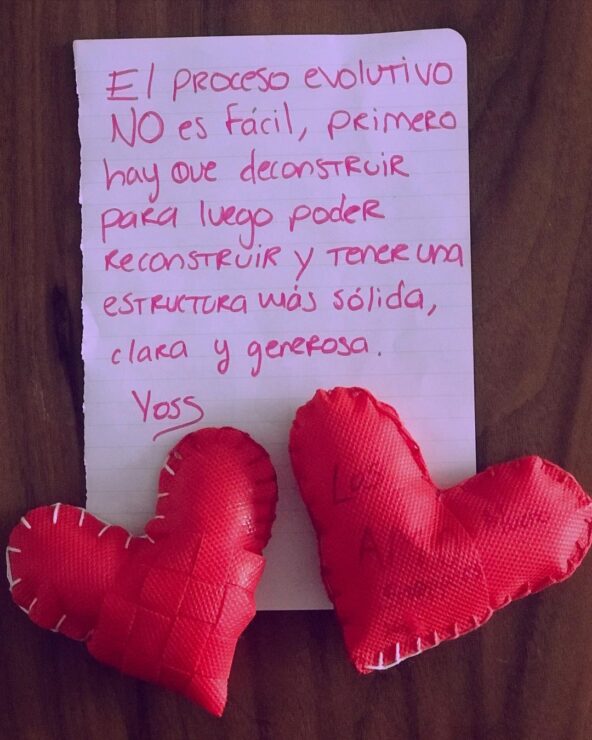 El proceso evolutivo
NO es fácil, primero
hay que deconstruir
para luego poder
reconstruir y tener una
estructura más sólida,
clara y generosa.
Yoss
Los